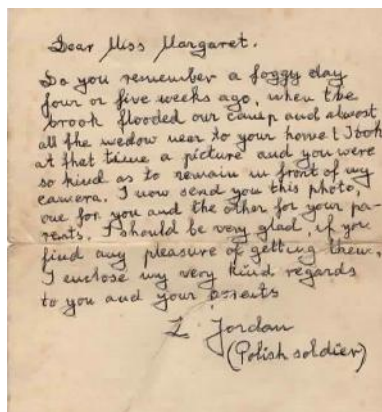 Dear Miss Margaret.
Do you remember a foggy day
four or five weeks ago, when the
brook flooded our camp and almost
all the medow near to your home? I took
at that time a picture and you were
so kind as to remain in front of my
camera. I now send you this photo,
one for you and the other for your pa-
rents. I should be very glad, if you
find any pleasure of getting them.
I enclose my very kind regards
to you and your parents
L Jordan
(Polish soldier)